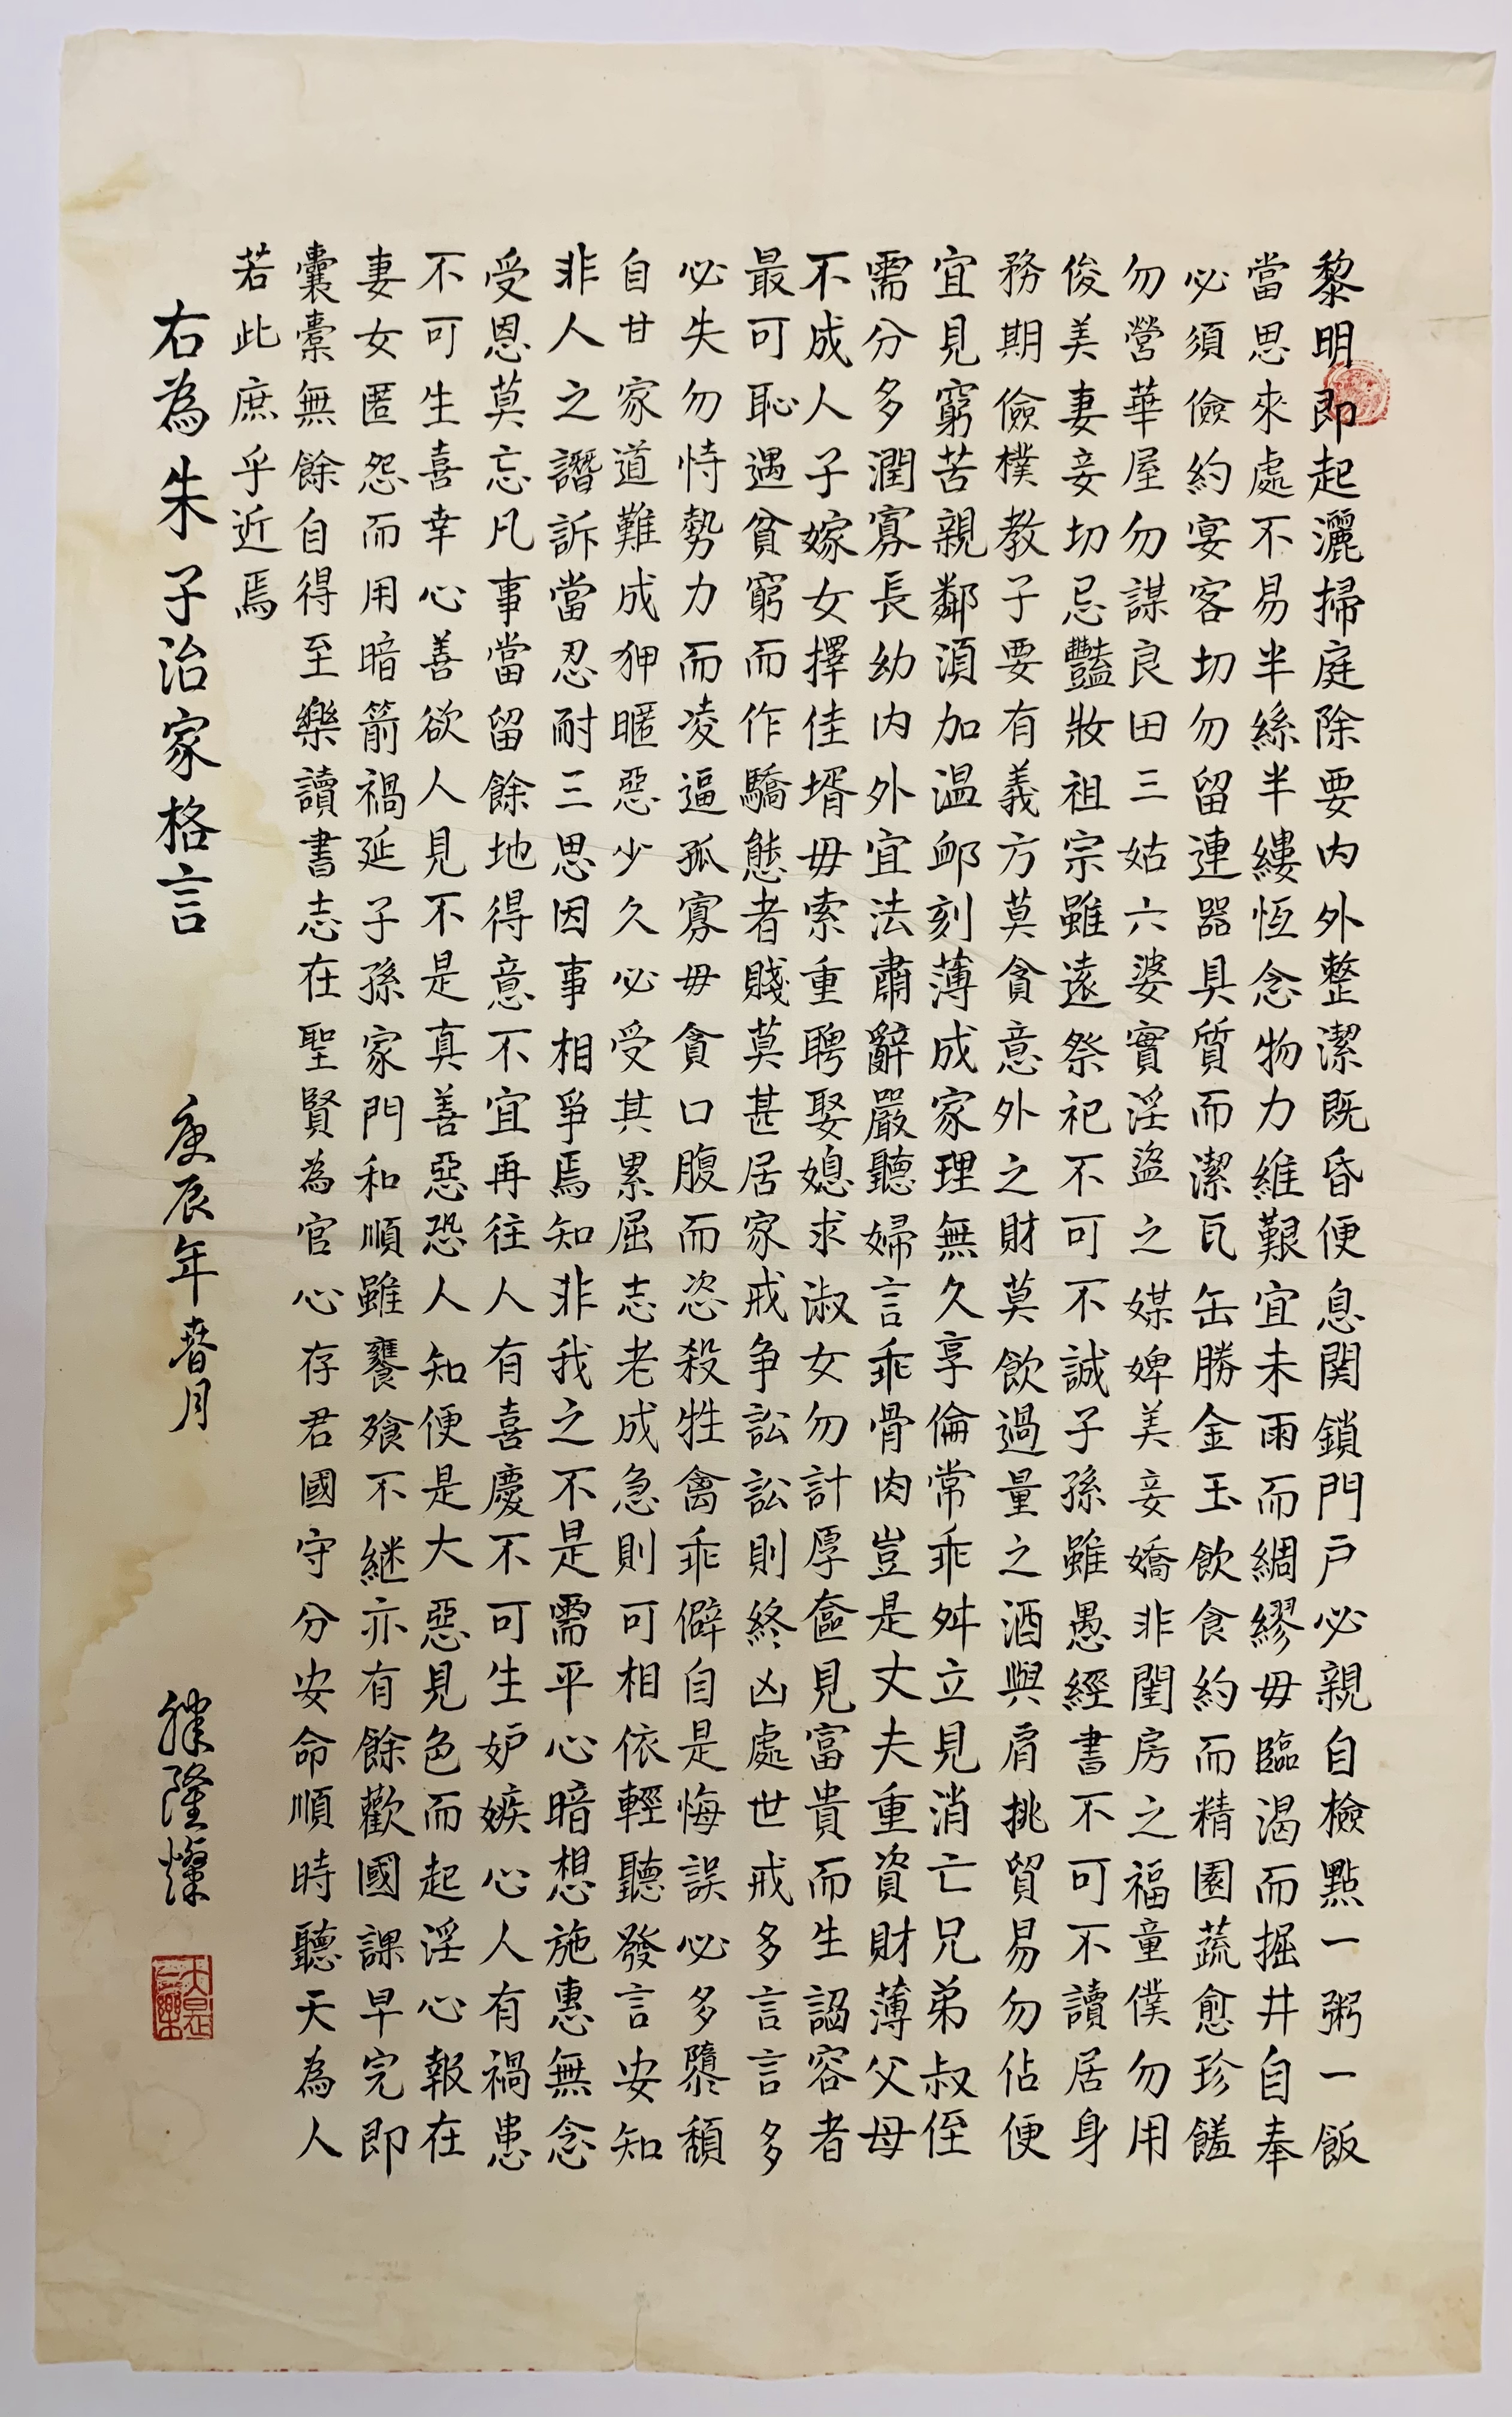 黎明即起灑掃庭除要内外整潔既昏便息関鎖門戶必親自檢點一粥一飯
當思來處不易半絲半縷恆念物力維艱宜未雨而綢繆毋臨渴而掘井自奉
必須儉約宴客切勿留連器具質而潔瓦缶勝金玉飲食約而精園蔬愈珍饈
勿營華屋勿謀良田三姑六婆實淫盜之媒婢美妾嬌非閨房之福童僕勿用
俊美妻妾切忌豔妝祖宗雖遠祭祀不可不誠子孫雖愚經書不可不讀居身
務期儉樸教子要有義方莫貪意外之財莫飲過量之酒與肩挑貿易勿佔便
宜見窮苦親鄰湏加温卹刻薄成家理無久享倫常乖舛立見消亡兄弟叔侄
需分多潤寡長幼内外宜法肅辭嚴聽婦言乖骨肉豈是丈夫重資財薄父母
不成人子嫁女擇佳壻毋索重聘娶媳求淑女勿計厚奩見富貴而生謟容者
最可恥遇貧窮而作驕態者賤莫甚居家戒争訟訟則終凶處世戒多言言多
必失勿恃勢力而凌逼孤寡毋貪口腹而恣殺牲禽乖僻自是悔誤必多隳頹
自甘家道難成狎暱惡少久必受其累屈志老成急則可相依輕聽發言安知
非人之譖訴當忍耐三思因事相爭焉知非我之不是需平心暗想施惠無念
受恩莫忘凡事當留餘地得意不宜再往人有喜慶不可生妒嫉心人有禍患
不可生喜幸心善欲人見不是真善惡恐人知便是大惡見色而起淫心報在
妻女匿怨而用暗箭禍延子孫家門和順雖饔飧不継亦有餘歡國課早完即
囊橐無餘自得至樂讀書志在聖賢為官心存君國守分安命順時聽天為人
若此庶乎近焉
右為朱子治家格言
庚辰年春月
滕隆燦